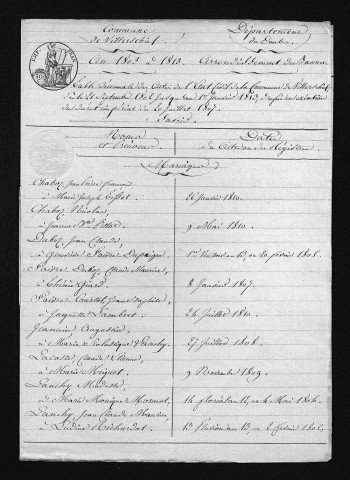 Commune
de Vitterschief
Département
du Doubs
An 1803 à 1813. Arrondissement de Baume
Table Décennale des Actes de l'Etat Civil de la Commune de
du 21 Septembre jusqu'au 1er Janvier 1813, en exécution
du décret impérial du 20 Juillet 1807.
Savoir
Noms
et Prénoms
Dates
des Actes ou des Registres
Mariages
Chaboz, Jean Pierre François
à Marie Joseph 26 Janvier 1810.
Chaboz Nicolas,
à Jeanne 9 Mai 1810.
Duboz, Jean Claude,
à Geneviève Faivre 1er Ventose an 13, ou 20 février 1805.
Faivre Duboz, Claude Maurice,
à Girard 8 Janvier 1807.
Faivre Courtot, Jean Baptiste,
à Jacquette Lambert. 24 Juillet 1810.
Jeannin Augustin,
à Marie Scholastique 27 Juillet 1808.
Lacoste Claude Etienne,
à Marie Miguet. 9 Novembre 1809.
Parchy Modeste
à Marie Monique Monnot, 14 floréal an 12, ou 4 Mai 1804.
Parchy, Jean Claude Maurice,
à Richardot. 13 Pluviose an 13, ou 2 février 1805.